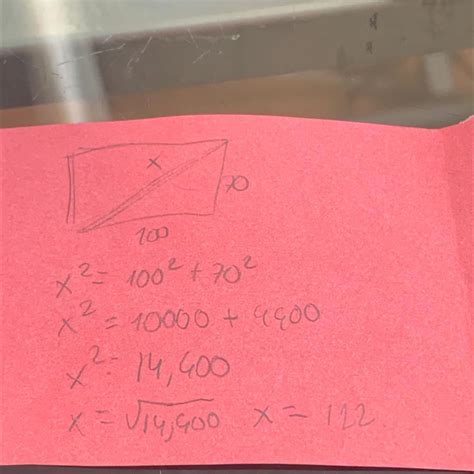 x
70
100
x² = 100² + 70²
x² = 10000 + 4900
x² = 14,900
x = √14,900 x = 122